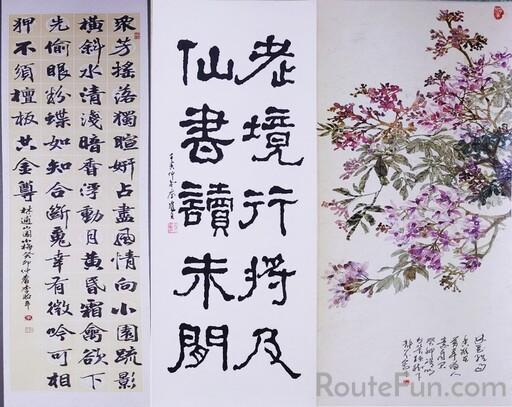 眾芳搖落獨暄妍占盡風情向小園疏影
橫斜水清淺暗香浮動月黃昏霜禽欲下
先偷眼粉蝶如知合斷魂幸有微吟可相
狎不須檀板共金尊 林逋山園小梅癸卯仲春李
老境行将及
仙書讀未
壬寅仲冬
RouteFun.com